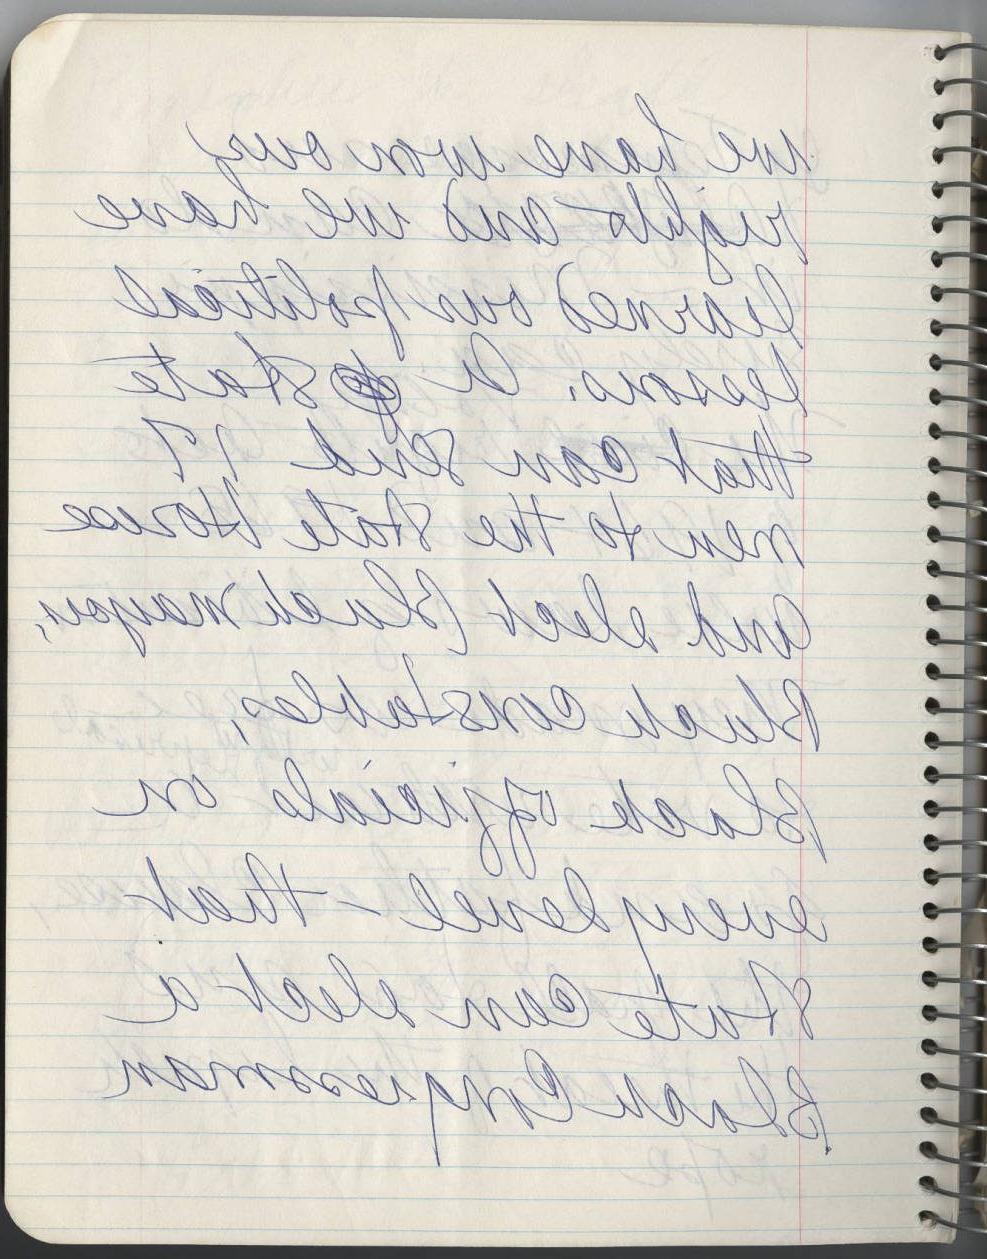 we have won our
right and we have
learned our political
lessons. A State
that can send 17
men to the State House
and elect Black mayors,
Black constables,
Black officials on
every level - that
State can elect a
Black Congressman